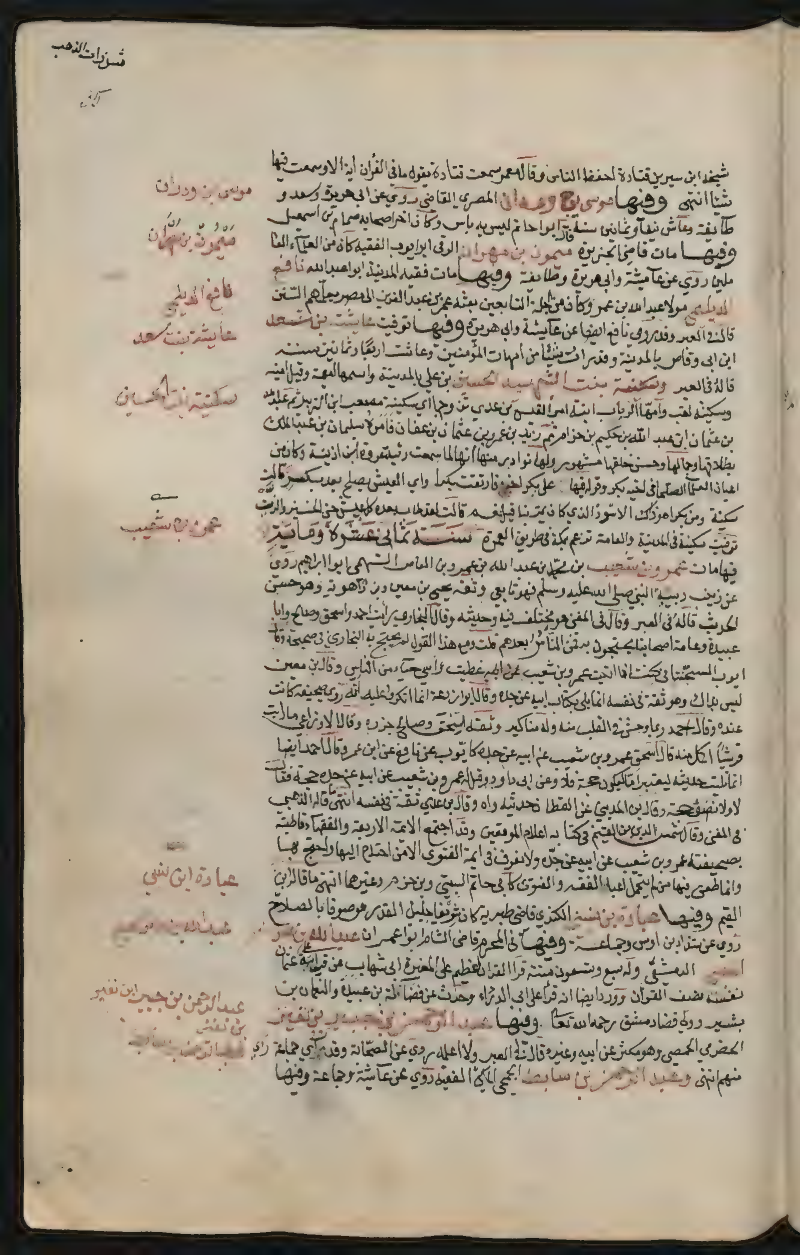 شذرات الذهب
شيخه ابن سيرين قتادة احفظ الناس وقال معمر سمعت قتادة يقول ما في القرآن آية الا وسمعت فيها
شيا انتهى وفيها موسى بن وردان المصري القاضي روى عن ابي هريرة وسعد و
طايفة وعاش نيفا وثمانين سنة قال ابو حاتم ليس به باس وكان اخر اصحابه ضمام بن اسمعيل
وفيها مات قاضي الجزيرة ميمون بن مهران الرقي ابو ايوب الفقيه كان من العلماء العا
ملين روى عن عايشة وابي هريرة وطايفة وفيها مات فقيه المدينة ابو عبد الله نافع
الديلمي مولا عبد الله بن عمر وكان من جلة التابعين بعثه عمر بن عبد العزيز الى مصر يعلمهم السنن
قاله في العبر وقد روى نافع ايضا عن عايشة وابي هريرة وفيها توفيت عايشة بنت سعد
ابن ابي وقاص بالمدينة وقد رات شيئا من امهات المؤمنين وعاشت اربعا وثمانين سنة
قاله في العبر وسكينة بنت الشهيد الحسين بن علي بالمدينة واسمها اميمة وقيل امينة
وسكينة لقب وامها الرباب ابنة امرئ القيس بن عدي تزوجها ابن مصعب ابن الزبير ثم عبد الله
بن عثمان ابن عبد الله بن حكيم بن حزام ثم زيد بن عمرو بن عثمان بن عفان فامره سليمان بن عبد الملك
بطلاقها وجمالها وحسن خلقها مشهور ولها نوادر منها انها لما سمعت رثية عروة ابن اذينة وكان من
اعيان العلماء الصلحا في اخيه بكر وقوله فيها على بكر اخي فارقت بكرا واي العيش يصلح بعد بكر قالت
سكينة ومن بكر اهو ذلك الاسود الذي كان يمر بنا قيل نعم قالت لقد طاب بعده كل عيش حتى الخبز والزيت
توفيت سكينة في المدينة والعامة تزعم بمكة في طريق العمرة سنة ثماني عشرة ومائة
فيها مات عمرو بن شعيب بن محمد بن عبد الله بن عمرو بن العاص السهمي ابو ابراهيم روى
عن زينب ربيبة النبي صلى الله عليه وسلم فهو تابعي وثقه يحيى بن معين وبن راهويه وهو حسن
الحديث قاله في العبر وقال في المغني هو مختلف فيه وحديثه وقال البخاري رايت احمد واسحق وصالح وابا
عبيدة وعامة اصحابنا يحتجون به فمن الناس بعدهم قلت ومع هذا القول لم يحتج به البخاري في صحيحه وقال
ايوب السختياني كنت اذا اتيت عمرو بن شعيب غطيت راسي حياء من الناس وقال بن معين
ليس بذاك وهو ثقة في نفسه انما بلي بكتاب ابيه عن جده وقال ابو زرعة انما انكروا عليه انه روى صحيفة كانت
عنده وقال احمد ربما وحش في القلب منه وله مناكير وثقه اسحق وصالح جزرة وقال الاوزاعي ما رايت
قرشيا اكمل منه قال اسحق عمرو بن شعيب عن ابيه عن جده كايوب عن نافع عن ابن عمر وقال احمد ايضا
انما نكتب حديثه ليعتبر اما ليكون حجة فلا وعن ابي داود وقيل له عمرو بن شعيب عن ابيه عن جده حجة فقال
لا ولا نصف حجة وقال بن المديني عن القطان حديثه واه وقال بن عدي ثقة في نفسه انتهى ما قاله الذهبي
في المغني وقال شمس الدين بن القيم في كتابه اعلام الموقعين وقد اجتمع الائمة الاربعة والفقهاء قاطبة
بصحيفة عمرو بن شعيب عن ابيه عن جده ولا نعرف في ائمة الفتوى الا من احتاج اليها واحتج بها
وانما طعن فيها من لم يتحمل اعباء الفقه والفتوى كابي حاتم البستي وبن حزم وغيرهما انتهى ما قاله ابن
القيم وفيها عبادة بن نسي الكندي قاضي طبرية كان شريفا جليل القدر موصوفا بالصلاح
روى عن شداد بن اوس وجماعة وفيها في المحرم قاضي الشام ابو عمران عبد الله بن عامر
الدمشقي وله سبع وتسعون سنة قرا القرآن العظيم على المغيرة ابن شهاب عن قراءة على عثمان
نفسه نصف القرآن وورد ايضا انه قرا على ابي الدرداء وحدث عن فضالة بن عبيدة والنعمان بن
بشير وولي قضاء دمشق رحمه الله تعالى وفيها عبد الرحمن بن جبير بن نفير
الحضرمي الحمصي وهو مكثر عن ابيه وغيره قال في العبر ولا اعلمه روى عن الصحابة وقد راى جماعة
منهم انتهى وعبد الرحمن بن سابط الجمحي المكي الفقيه روى عن عايشة وجماعة وفيها
موسى بن وردان
ميمون بن مهران
نافع الديلمي
عايشة بنت سعد
سكينة ابنة الحسين
عمرو بن شعيب
عبادة ابن نسي
عبد الرحمن بن جبير ابن نفير